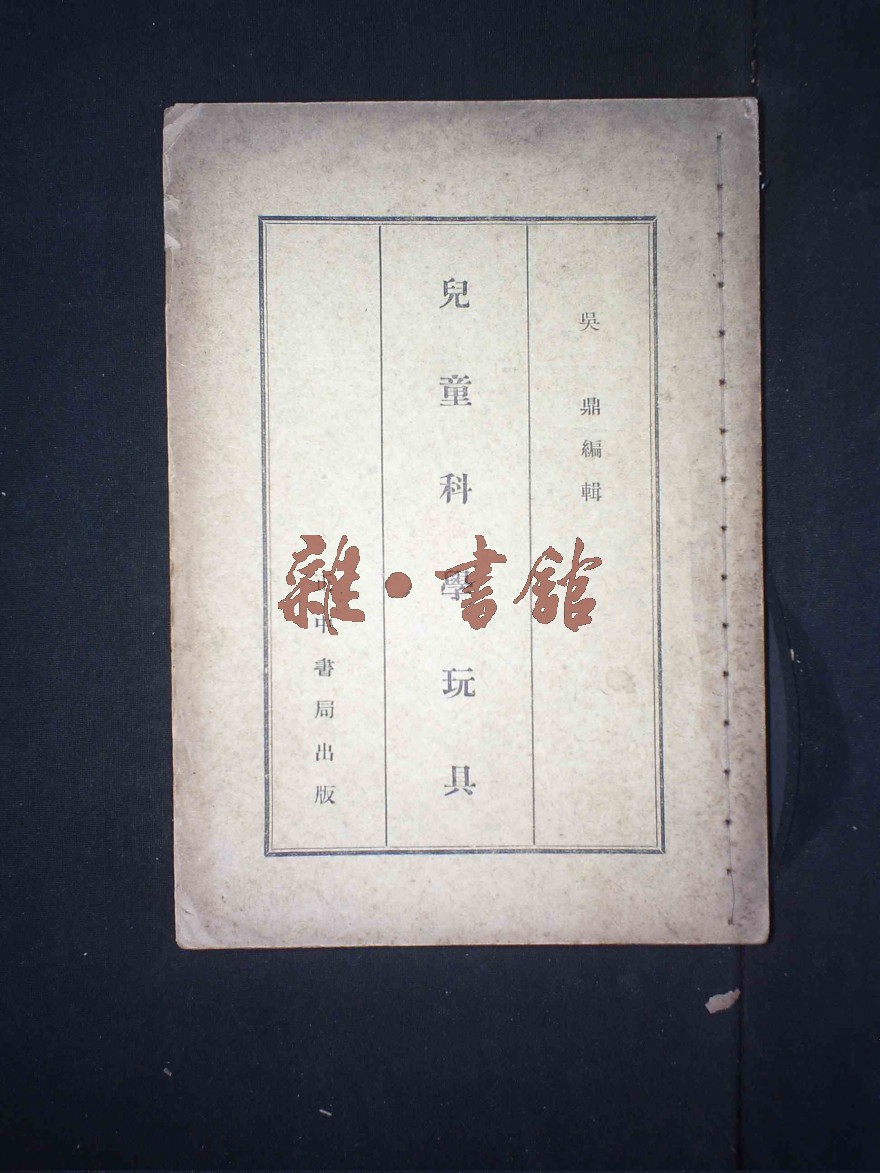 吳鼎編輯
兒童科學玩具
中書局出版
雜·書館